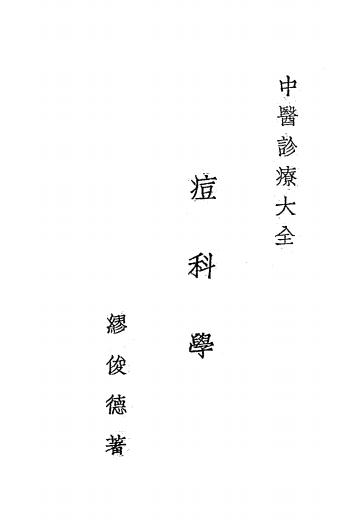 中醫診療大全
痘科學
繆俊德著